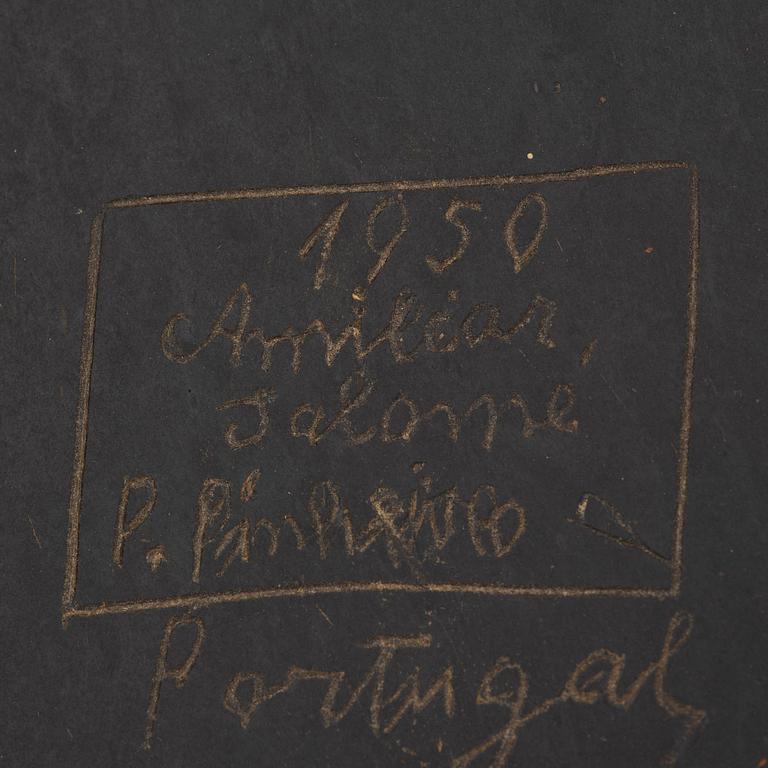 1950
Amilcar,
Salome
P. Pinheiro
Portugal